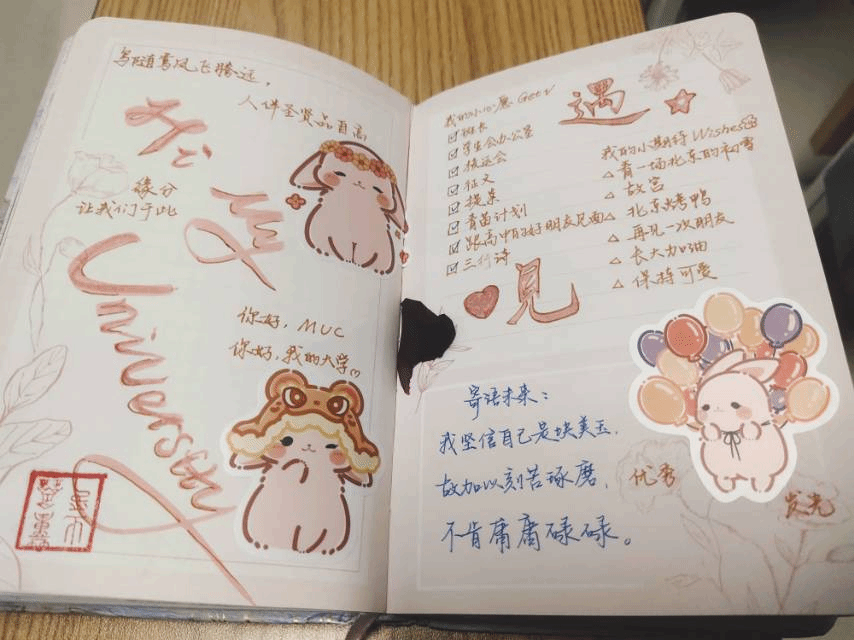 鸟随鸾凤飞腾远，
人伴圣贤品自高
Hi
My
缘分
让我们于此
University
你好，MUC
你好，我的大学
我的小心愿
班长
学生会办公室
换运会
征文
提案
青苗计划
跟高中的好朋友见面
三行诗
遇
见
我的小期待 Wishes
看一场北京的初雪
故宫
北京烤鸭
再见一次朋友
长大加油
保持可爱
寄语未来：
我坚信自己是块美玉，
故加以刻苦琢磨，
不肯庸庸碌碌。
优秀
发光